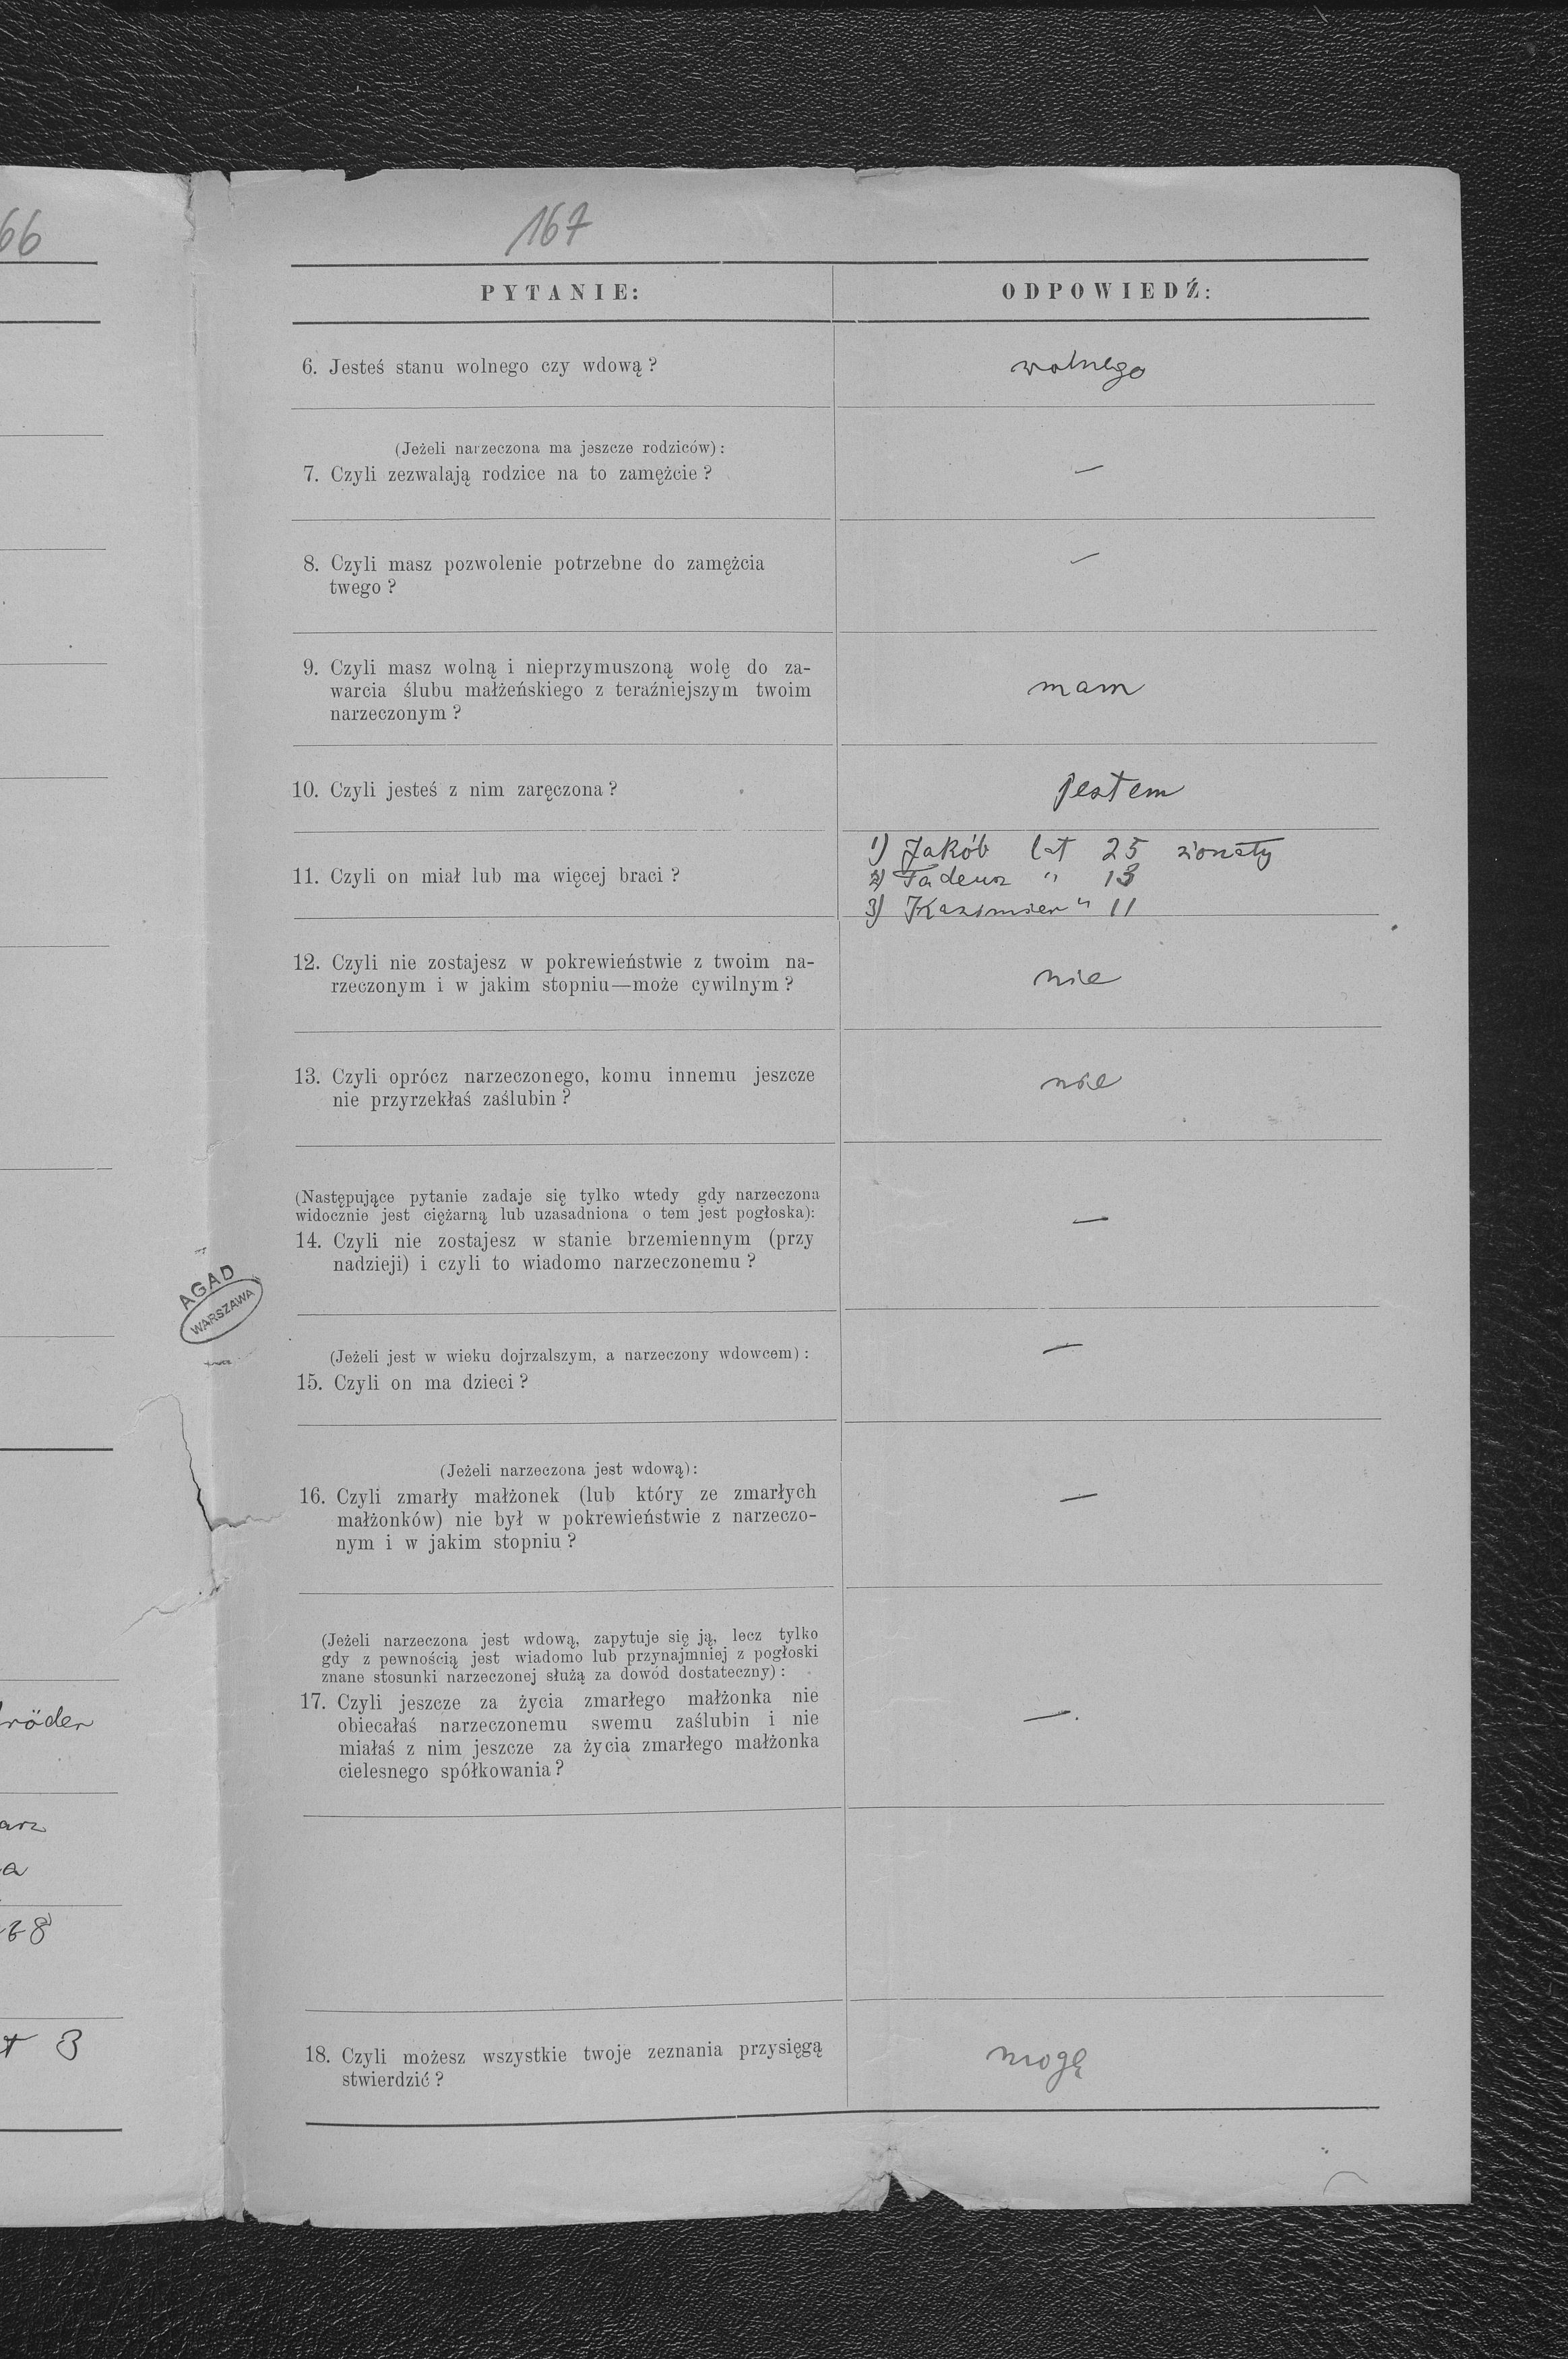 66
167
PYTANIE:
ODPOWIEDŹ:
6. Jesteś stanu wolnego czy wdową?
wolnego
(Jeżeli narzeczona ma jeszcze rodziców):
7. Czyli zezwalają rodzice na to zamężcie?
—
8. Czyli masz pozwolenie potrzebne do zamężcia
twego?
—
9. Czyli masz wolną i nieprzymuszoną wolę do za-
warcia ślubu małżeńskiego z teraźniejszym twoim
narzeczonym?
mam
10. Czyli jesteś z nim zaręczona?
jestem
11. Czyli on miał lub ma więcej braci?
1) Jakób lat 25 żonaty
2) Tadeusz " 13
3) Kazimierz " 11
12. Czyli nie zostajesz w pokrewieństwie z twoim na-
rzeczonym i w jakim stopniu—może cywilnym?
nie
13. Czyli oprócz narzeczonego, komu innemu jeszcze
nie przyrzekłaś zaślubin?
nie
(Następujące pytanie zadaje się tylko wtedy gdy narzeczona
widocznie jest ciężarną lub uzasadniona o tem jest pogłoska):
14. Czyli nie zostajesz w stanie brzemiennym (przy
nadzieji) i czyli to wiadomo narzeczonemu?
—
AGAD
WARSZAWA
(Jeżeli jest w wieku dojrzalszym, a narzeczony wdowcem):
15. Czyli on ma dzieci?
—
(Jeżeli narzeczona jest wdową):
16. Czyli zmarły małżonek (lub który ze zmarłych
małżonków) nie był w pokrewieństwie z narzeczo-
nym i w jakim stopniu?
—
(Jeżeli narzeczona jest wdową, zapytuje się ją, lecz tylko
gdy z pewnością jest wiadomo lub przynajmniej z pogłoski
znane stosunki narzeczonej służą za dowód dostateczny):
17. Czyli jeszcze za życia zmarłego małżonka nie
obiecałaś narzeczonemu swemu zaślubin i nie
miałaś z nim jeszcze za życia zmarłego małżonka
cielesnego spółkowania?
—.
18. Czyli możesz wszystkie twoje zeznania przysięgą
stwierdzić?
mogę